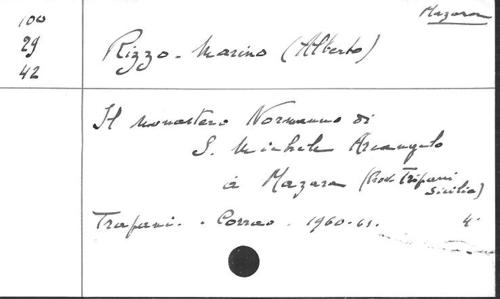 Mazara
100
29
42
Rizzo-Marino (Alberto)
Il monastero Normanno di
S. Michele Arcangelo
à Mazara (Prov. Trapani
Sicilia)
Trapani. - Corrao. 1960-61. 4°